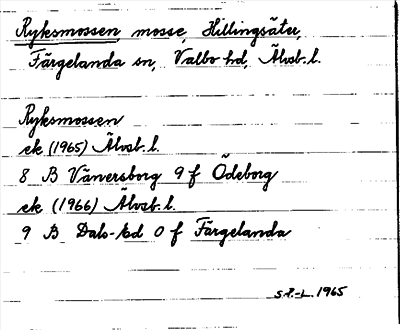 Ryksmossen, mosse, Hillingsäter,
Färgelanda sn, Valbo hd, Älvsb. l.
Ryksmossen
ek (1965) Älvsb. l.
8 B Vänersborg 9 f Ödeborg
ek (1966) Älvsb. l.
9 B Dals-Ed 0 f Färgelanda
1965